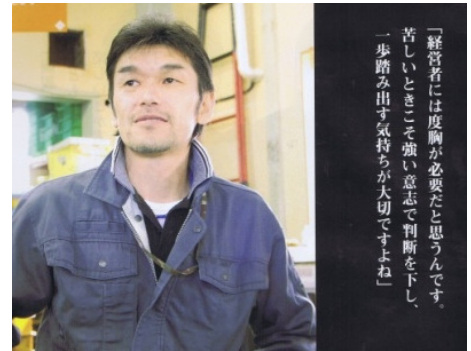 「経営者には度胸が必要だと思うんです。
苦しいときこそ強い意志で判断を下し、
一歩踏み出す気持ちが大切ですよね」